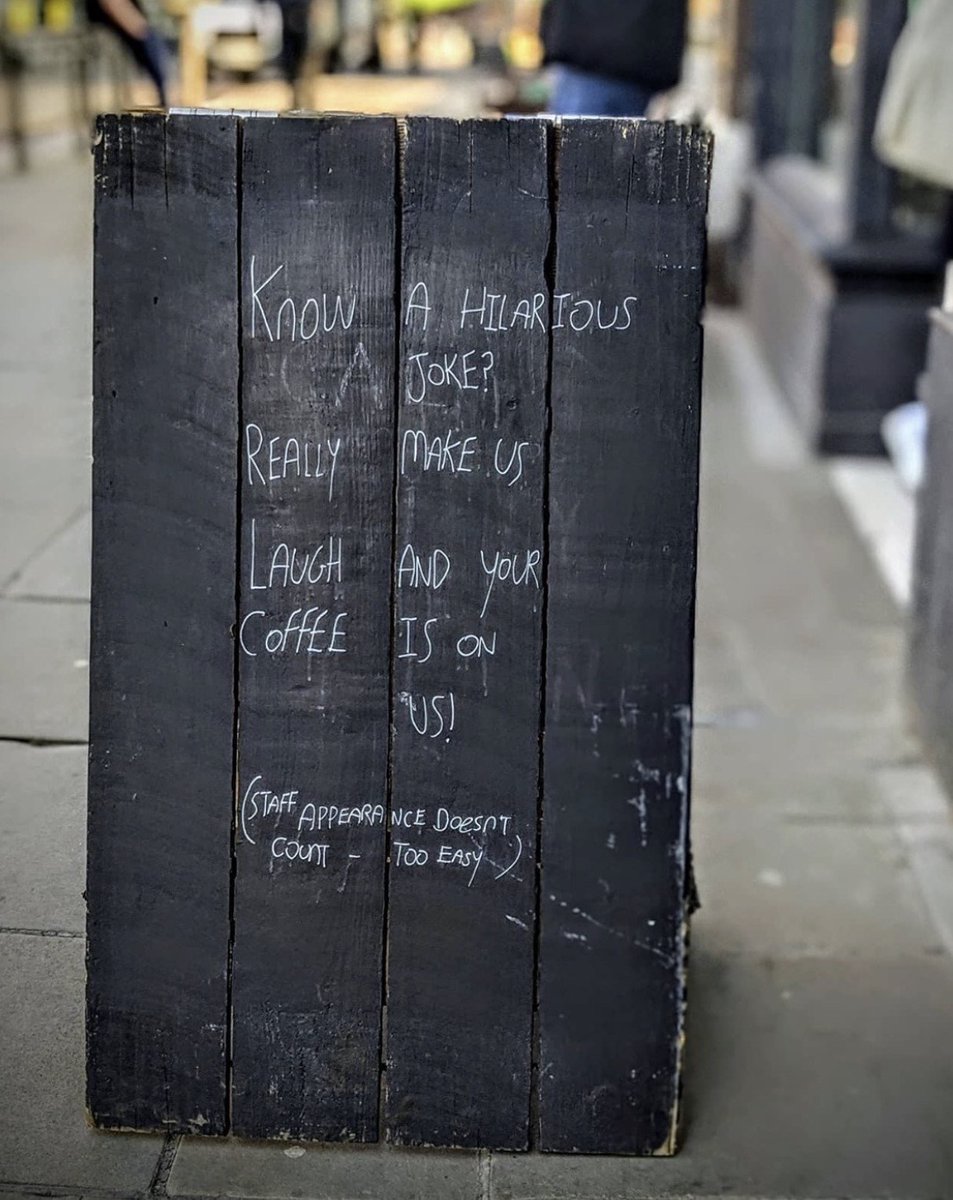 KnOW A HILARIOUS
JOKE?
REALLY MAKE US
LAUGH AND YOUR
COffEE IS ON
US!
(STAFF APPEARANCE DOesnT
COUnT - TOO EASY)